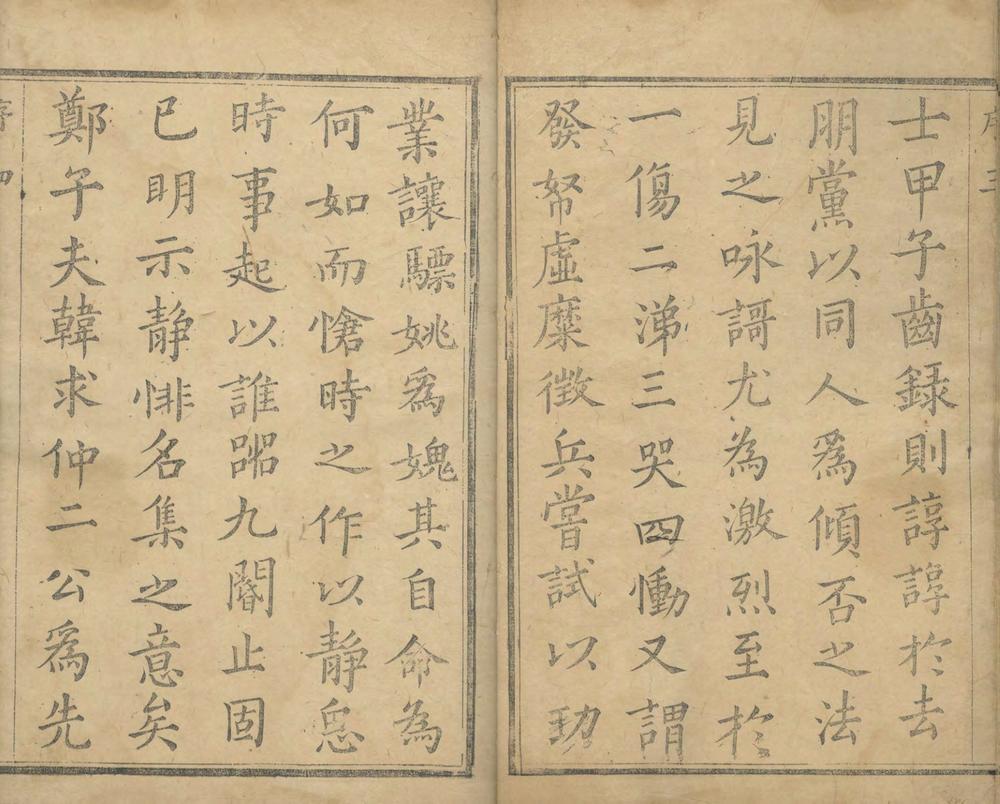 序三
士甲子齒録則諄諄於去
朋黨以同人爲傾否之法
見之咏謌尤為激烈至於
一傷二涕三哭四慟又謂
發帑虛糜徴兵嘗試以勁
業讓驃姚爲媿其自命為
何如而愴時之作以静恖
時事起以誰嘂九閽止固
已明示静悱名集之意矣
鄭子夫韓求仲二公爲先
序四